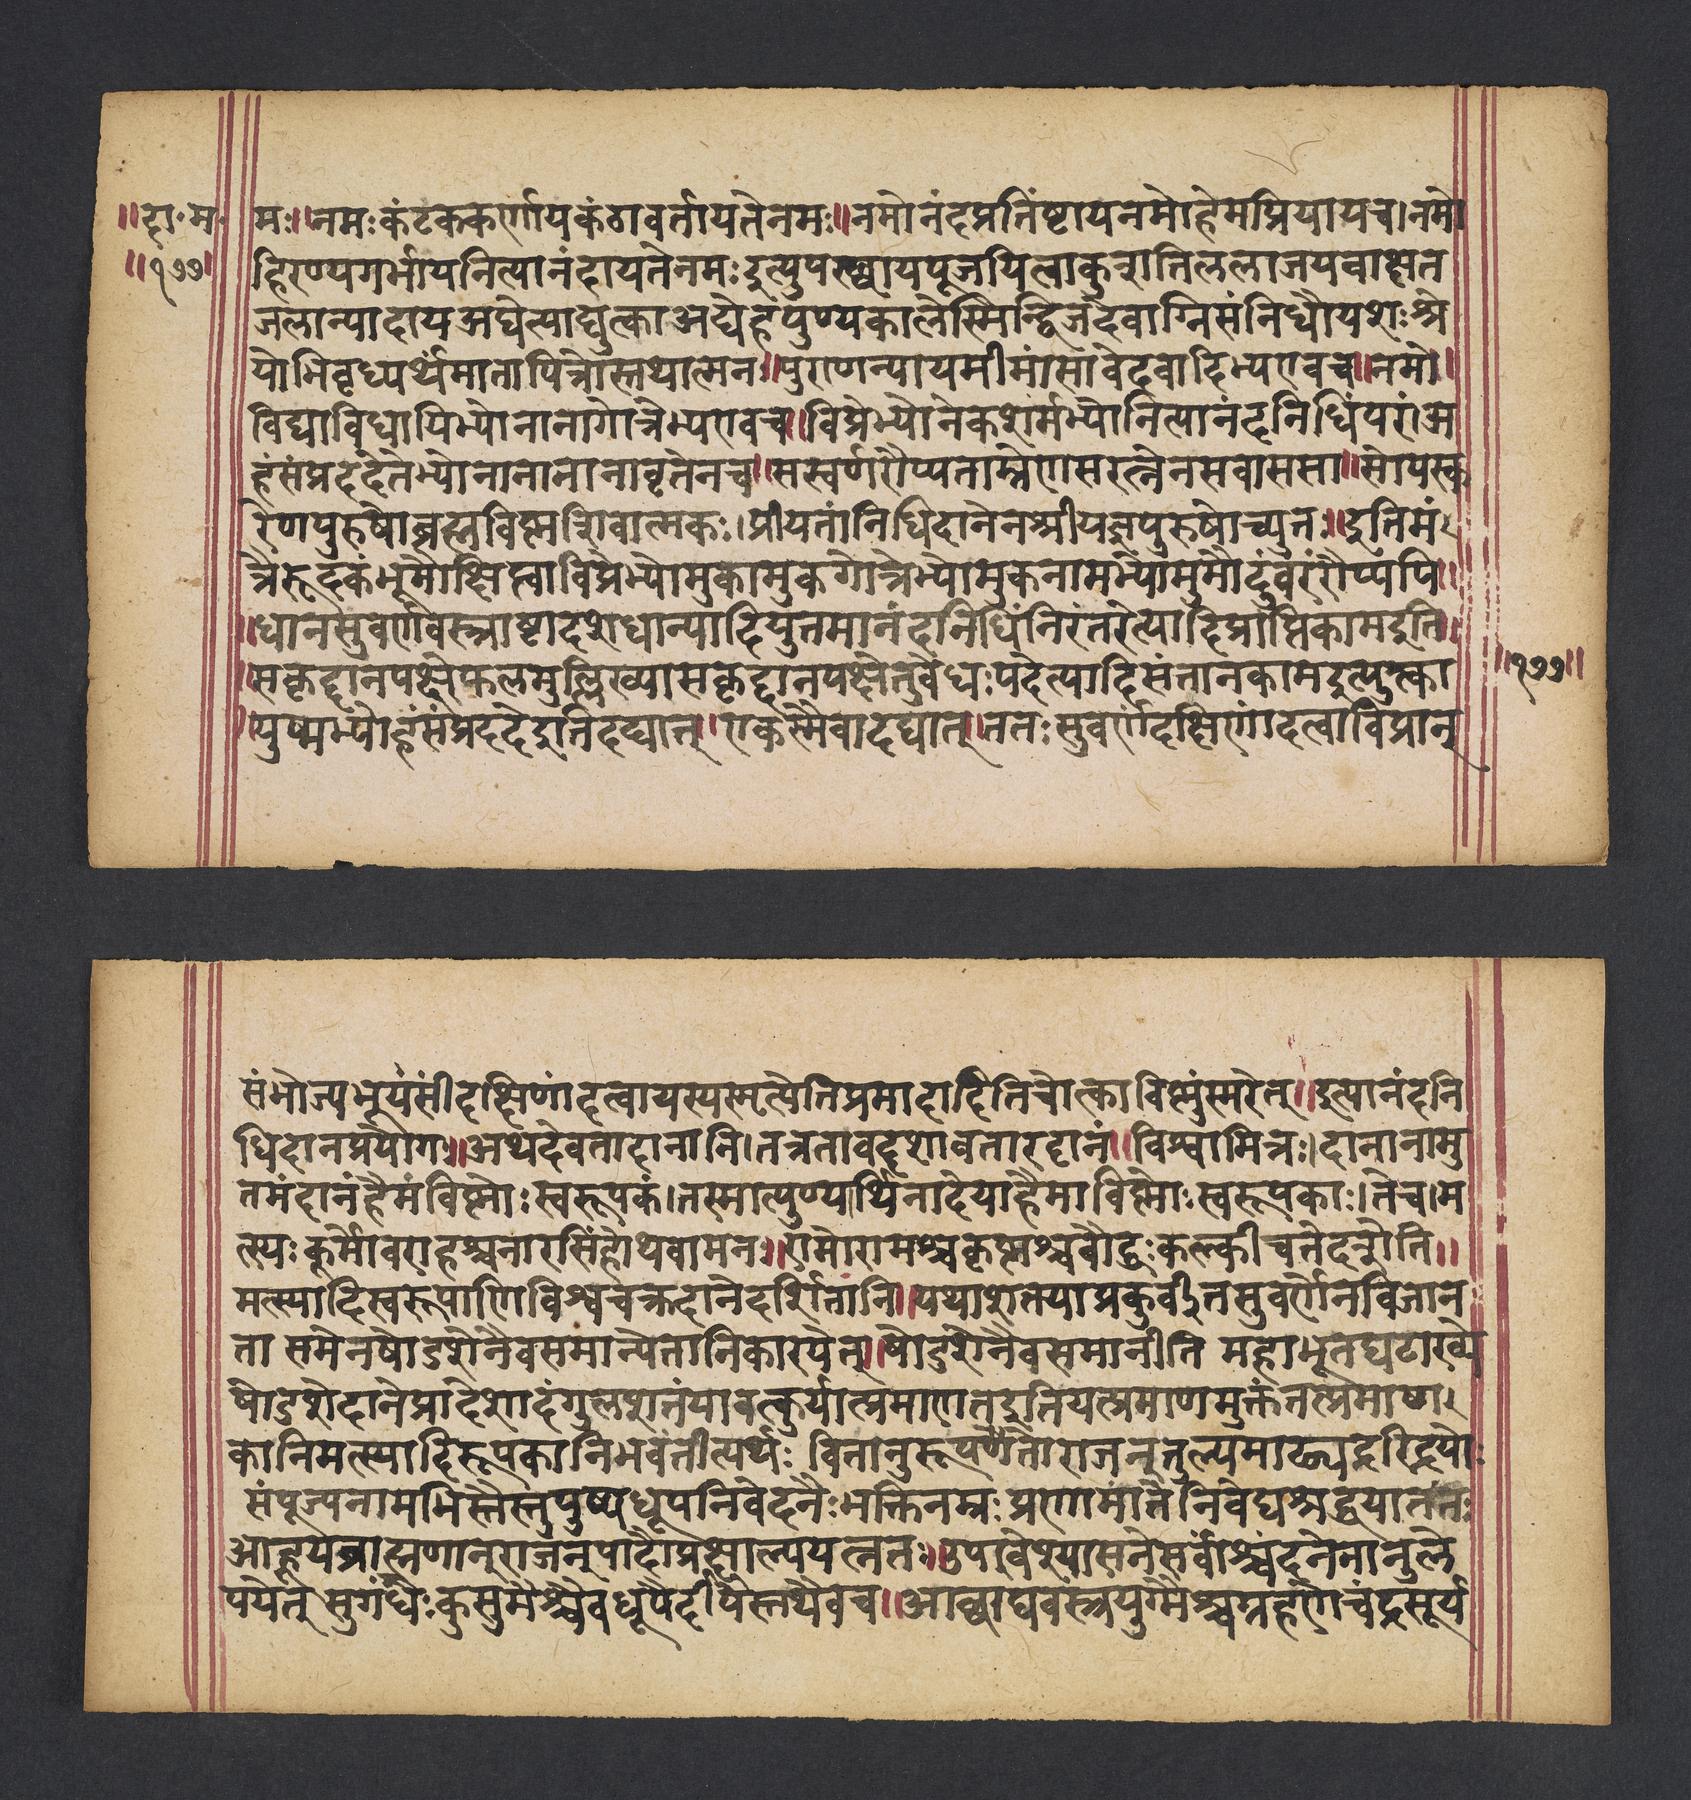 ॥दा॰म॰
॥१७७॥
मः॥नमःकंटककर्णायकंठावर्तायतेनमः॥नमोनंदप्रतिंष्टायनमोहेमप्रियायच।नमो
हिरण्यगर्भाययनित्यानंदायतेनमःइत्युपस्थायपूजयित्वाकुशतिललाजयवाक्षत
जलान्यादायअद्येत्याद्युत्काअद्येहंपुण्यकालेस्मिन्द्विजदेवाग्निसंनिधौयशःश्रे
योभिवृध्यर्थंमातापित्रोस्तथात्मनः॥पुराणन्यायमीमांसावेदवादिभ्यएवच॥नमो॥
विद्याविधायिभ्योनानागोत्रेभ्यएवच॥विप्रेभ्योनेकशर्मभ्योनित्यानंदनिधिंपरांअ
हंसंप्रददेतेभ्योनानानानावृतेनच॥सस्वर्णरौप्यताम्रेणसरत्नेनसवाससा॥सोपस्क
रेणपुरुषोब्रह्मविष्णुशिवात्मकः।प्रीयतांनिधिदानेनश्रीयज्ञपुरुषोच्युतः॥इतिमं
त्रैरुदकंभूमौक्षिप्त्वाविप्रेभ्योमुकामुकगोत्रेभ्योमुकनामभ्योमुमौदुंबरंरौप्यपि॥
॥धानसुवर्णवस्त्राष्टादशधान्यादियुतमानंदनिधिंनिरंतरेत्यादिप्राप्तिकामइति
सकृद्दानपक्षेफलमुल्लिख्यासकृद्दानपक्षेतुवंधःपदेत्यादिसंतानकामइत्युत्का
युष्मभ्योहंसंप्रददेइतिदद्यात्॥एकस्मैवादद्यात्॥ततःसुवर्णदक्षिणांदत्वाविप्रान्
॥१७७॥
संभोज्यभूयसींदक्षिणांदत्वायस्यस्मृत्येतिप्रमादादितिचोत्काविष्णुंस्मरेत्॥इत्यानंदनि
धिदानप्रयोगः॥अथदेवतादानानि।तत्रतावद्दशावतारदानं॥विश्वामित्रः।दानानामु
तमंदानंहैमंविष्णोःस्वरूपकं।तस्मात्पुण्यार्थिनादेयाहैमाविष्णोःस्वरूपकाः।तेच।म
त्स्यःकूर्मोवराहश्चनारसिंहोथवामनः॥रामोरामश्चकृष्णश्चबौद्धःकल्कीचतेदशेति॥
मत्स्यादिस्वरूपाणिविश्वचक्रदानेदर्शितानि॥यथाशक्त्याप्रकुर्वीतसुवर्णेनविजान
ता समेनषोडशेनैवसमान्येतानिकारयेत्॥षोडशेनैवसमानीति महाभूतघटाख्ये
षोडशेदानेप्रादेशादंगुलशतंयावत्कुर्यात्प्रमाणतइतियत्प्रमाणमुक्तंतत्प्रमाण
कानिमत्स्यादिरूपकानिभवंतीत्यर्थः वितानुरूपणैतोराजन्तुल्यमाढ्यदरिद्रयोः
संपूज्यनामभिस्तैस्तुपुष्पधूपनिवेदनैःभक्तिनम्रःप्रणामांतेनिवेद्यश्रद्धयाततः
आहूयब्राह्मणान्‌राजन्‌पादौप्रक्षाल्ययत्नतः॥उपावेश्यासनेसर्वांश्चंदनेनानुले
पयेत् सुगंधैःकुसुमैश्चैवधूपैर्दीपैस्तथैवच॥आछाद्यवस्त्रयुग्मैश्चग्रहणेचंद्रसूर्य